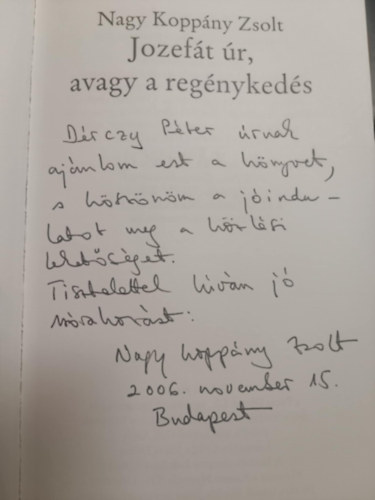 Nagy Koppány Zsolt
Jozefát úr,
avagy a regénykedés
Dérczy Péter úrnak
ajánlom ezt a könyvet,
s köszönöm a jóindu-
latot meg a közlési
lehetőséget.
Tisztelettel kíván jó
szórakozást:
Nagy Koppány Zsolt
2006. november 15.
Budapest